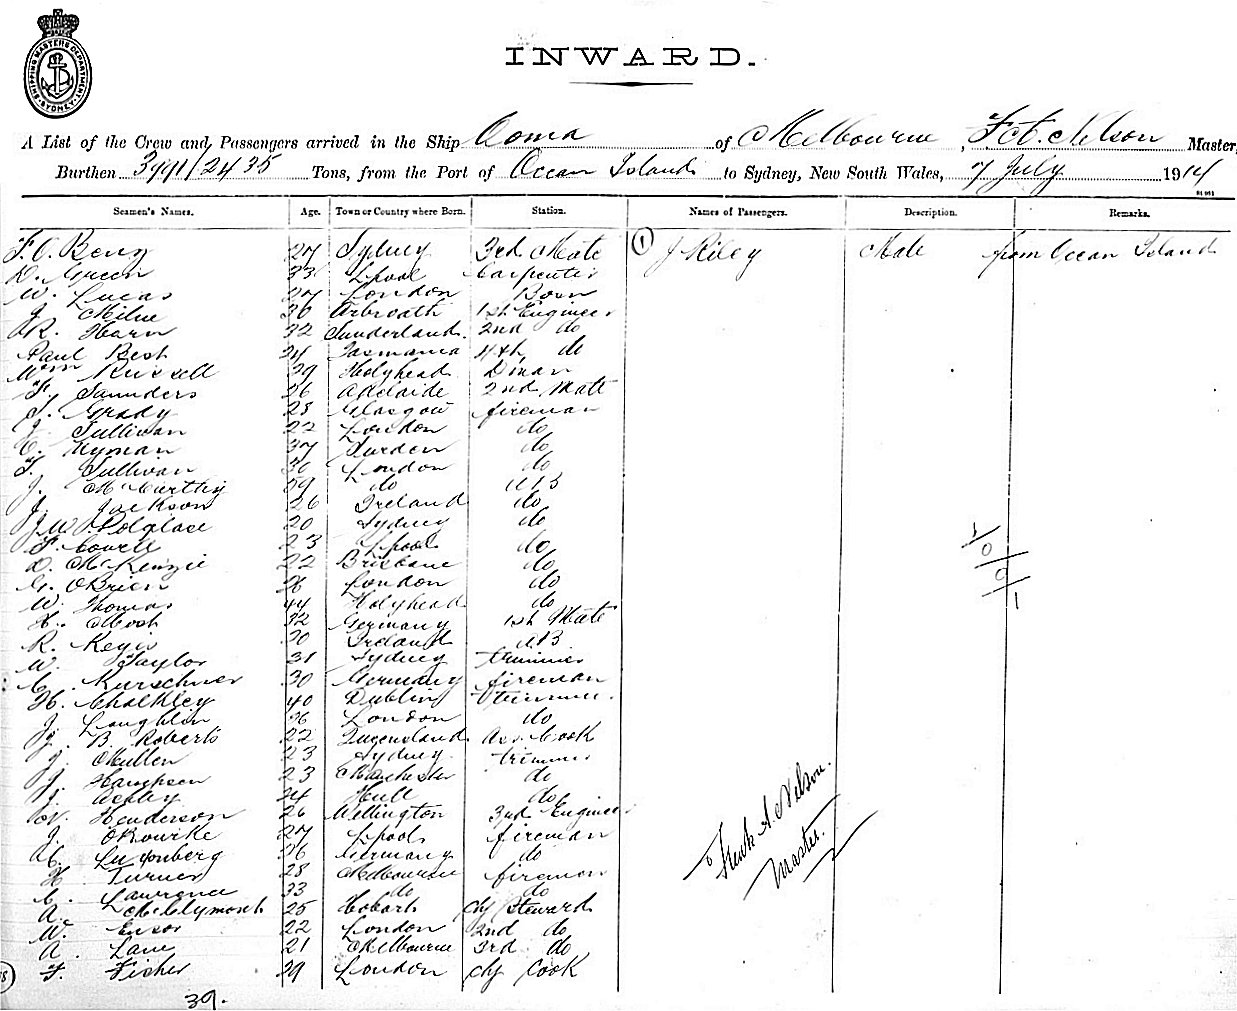 SHIPPING MASTERS DEPARTMENT SYDNEY
INWARD.
A List of the Crew and Passengers arrived in the Ship Ooma of Melbourne, F. A. Nelson Master,
Burthen 2435 Tons, from the Port of Ocean Islands to Sydney, New South Wales, 7 July 1914
Seamen's Names. Age. Town or Country where Born. Station. Names of Passengers. Description. Remarks.
F. O. Berg 27 Sydney 3rd Mate 1 J Riley Male from Ocean Island
D. Green 33 Lpool Carpenter
W. Lucas 27 London Bosn
J. Milne 36 Arbroath 1st Engineer
R. Harn 32 Sunderland 2nd do
Paul Best 24 Tasmania 4th do
Wm Russell 39 Holyhead Dman
F. Saunders 26 Adelaide 2nd Mate
T. Grady 28 Glasgow fireman
J. Sullivan 22 London do
C. Nyman 37 do
T. Sullivan 36 London do
J. McCarthy 39 do AB
J. Jackson 26 Ireland do
J. W. Polglase 20 Sydney do
F. Cowell 23 Lpool do
D. McKenzie 22 Brisbane do
G. OBrien 26 London do
W. Thomas 44 Holyhead do
H. 32 Germany 1st Mate
R. Regis 30 Ireland AB
W. Taylor 31 Sydney trimmer
C. Kurschner 30 Germany fireman
H. Chalkley 40 Dublin trimmer
J. Loughlin 26 London do
J. B. Roberts 22 Queensland Ass. Cook
J. OMullen 23 Sydney trimmer
J. Hampson 23 Manchester do
J. Webley 24 Hull do
W. Henderson 26 Wellington 3rd Engineer
J. ORourke 27 Lpool fireman
36 Germany do
H. Turner 28 Melbourne fireman
C. Lawrence 33 do do
A. McClymont 25 Hobart Chf Steward
W. Ensor 22 London 2nd do
A. Lane 21 Melbourne 3rd do
F. Fisher 29 London Chf Cook
39.
Frank A. Nelson.
Master.